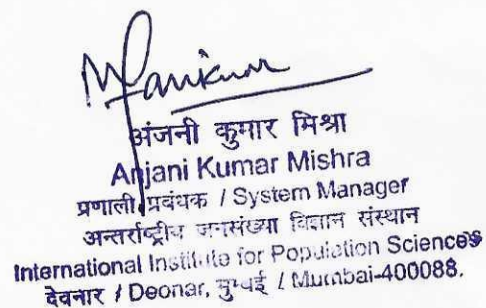 अंजनी कुमार मिश्रा
Anjani Kumar Mishra
प्रणाली प्रबंधक / System Manager
अन्तर्राष्ट्रीय जनसंख्या विज्ञान संस्थान
International Institute for Population Sciences
देवनार / Deonar, मुम्बई / Mumbai-400088.